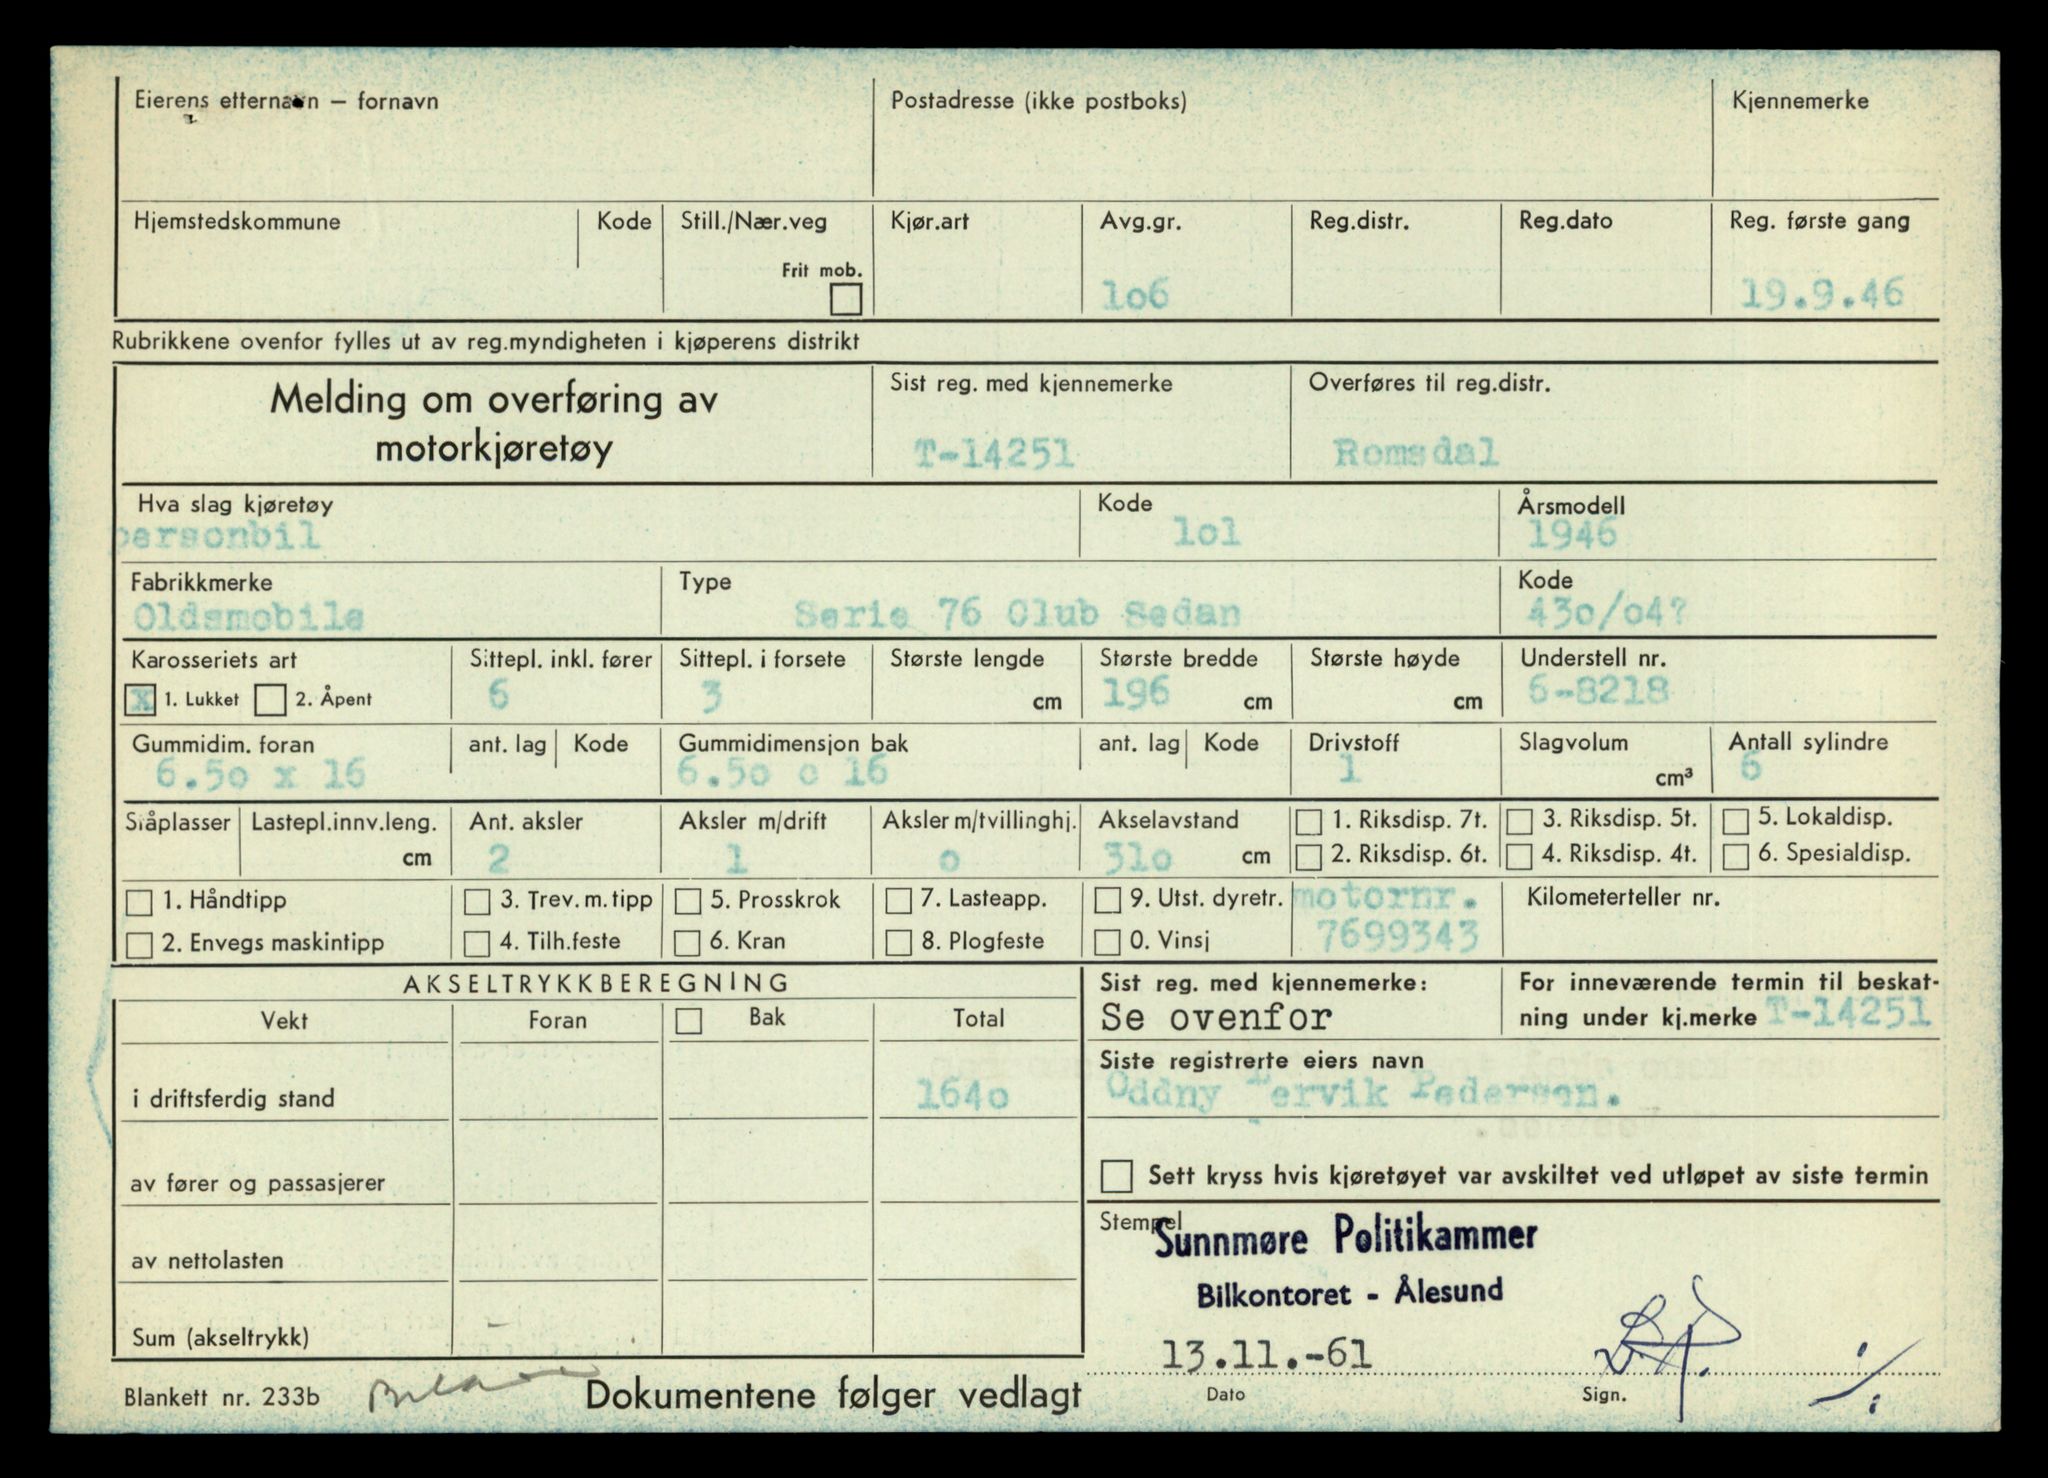 Eierens etternavn – fornavn Postadresse (ikke postboks) Kjennemerke
Hjemstedskommune Kode Still./Nær.veg Kjør.art Avg.gr. Reg.distr. Reg.dato Reg. første gang
Frit mob.
1o6 19.9.46
Rubrikkene ovenfor fylles ut av reg.myndigheten i kjøperens distrikt
Melding om overføring av motorkjøretøy
Sist reg. med kjennemerke Overføres til reg.distr.
T-14251 Romsdal
Hva slag kjøretøy Kode Årsmodell
personbil 1o1 1946
Fabrikkmerke Type Kode
Oldsmobile Serie 76 Club Sedan 43o/o4?
Karosseriets art Sittepl. inkl. fører Sittepl. i forsete Største lengde Største bredde Største høyde Understell nr.
x 1. Lukket 2. Åpent 6 3 cm 196 cm cm 6-8218
Gummidim. foran ant. lag Kode Gummidimensjon bak ant. lag Kode Drivstoff Slagvolum Antall sylindre
6.5o x 16 6.5o c 16 1 cm³ 6
Slåplasser Lastepl.innv.leng. Ant. aksler Aksler m/drift Aksler m/tvillinghj. Akselavstand 1. Riksdisp. 7t. 3. Riksdisp. 5t. 5. Lokaldisp.
cm 2 1 o 31o cm 2. Riksdisp. 6t. 4. Riksdisp. 4t. 6. Spesialdisp.
1. Håndtipp 3. Trev. m. tipp 5. Prosskrok 7. Lasteapp. 9. Utst. dyretr. motornr. Kilometerteller nr.
2. Envegs maskintipp 4. Tilh.feste 6. Kran 8. Plogfeste 0. Vinsj 7699343
AKSELTRYKKBEREGNING
Vekt Foran Bak Total
i driftsferdig stand 164o
av fører og passasjerer
av nettolasten
Sum (akseltrykk)
Sist reg. med kjennemerke: For inneværende termin til beskat-
Se ovenfor ning under kj.merke T-14251
Siste registrerte eiers navn
Oddny Tervik Pedersen.
Sett kryss hvis kjøretøyet var avskiltet ved utløpet av siste termin
Stempel
Sunnmøre Politikammer
Bilkontoret - Ålesund
13.11.-61
Dato Sign.
Blankett nr. 233b Dokumentene følger vedlagt